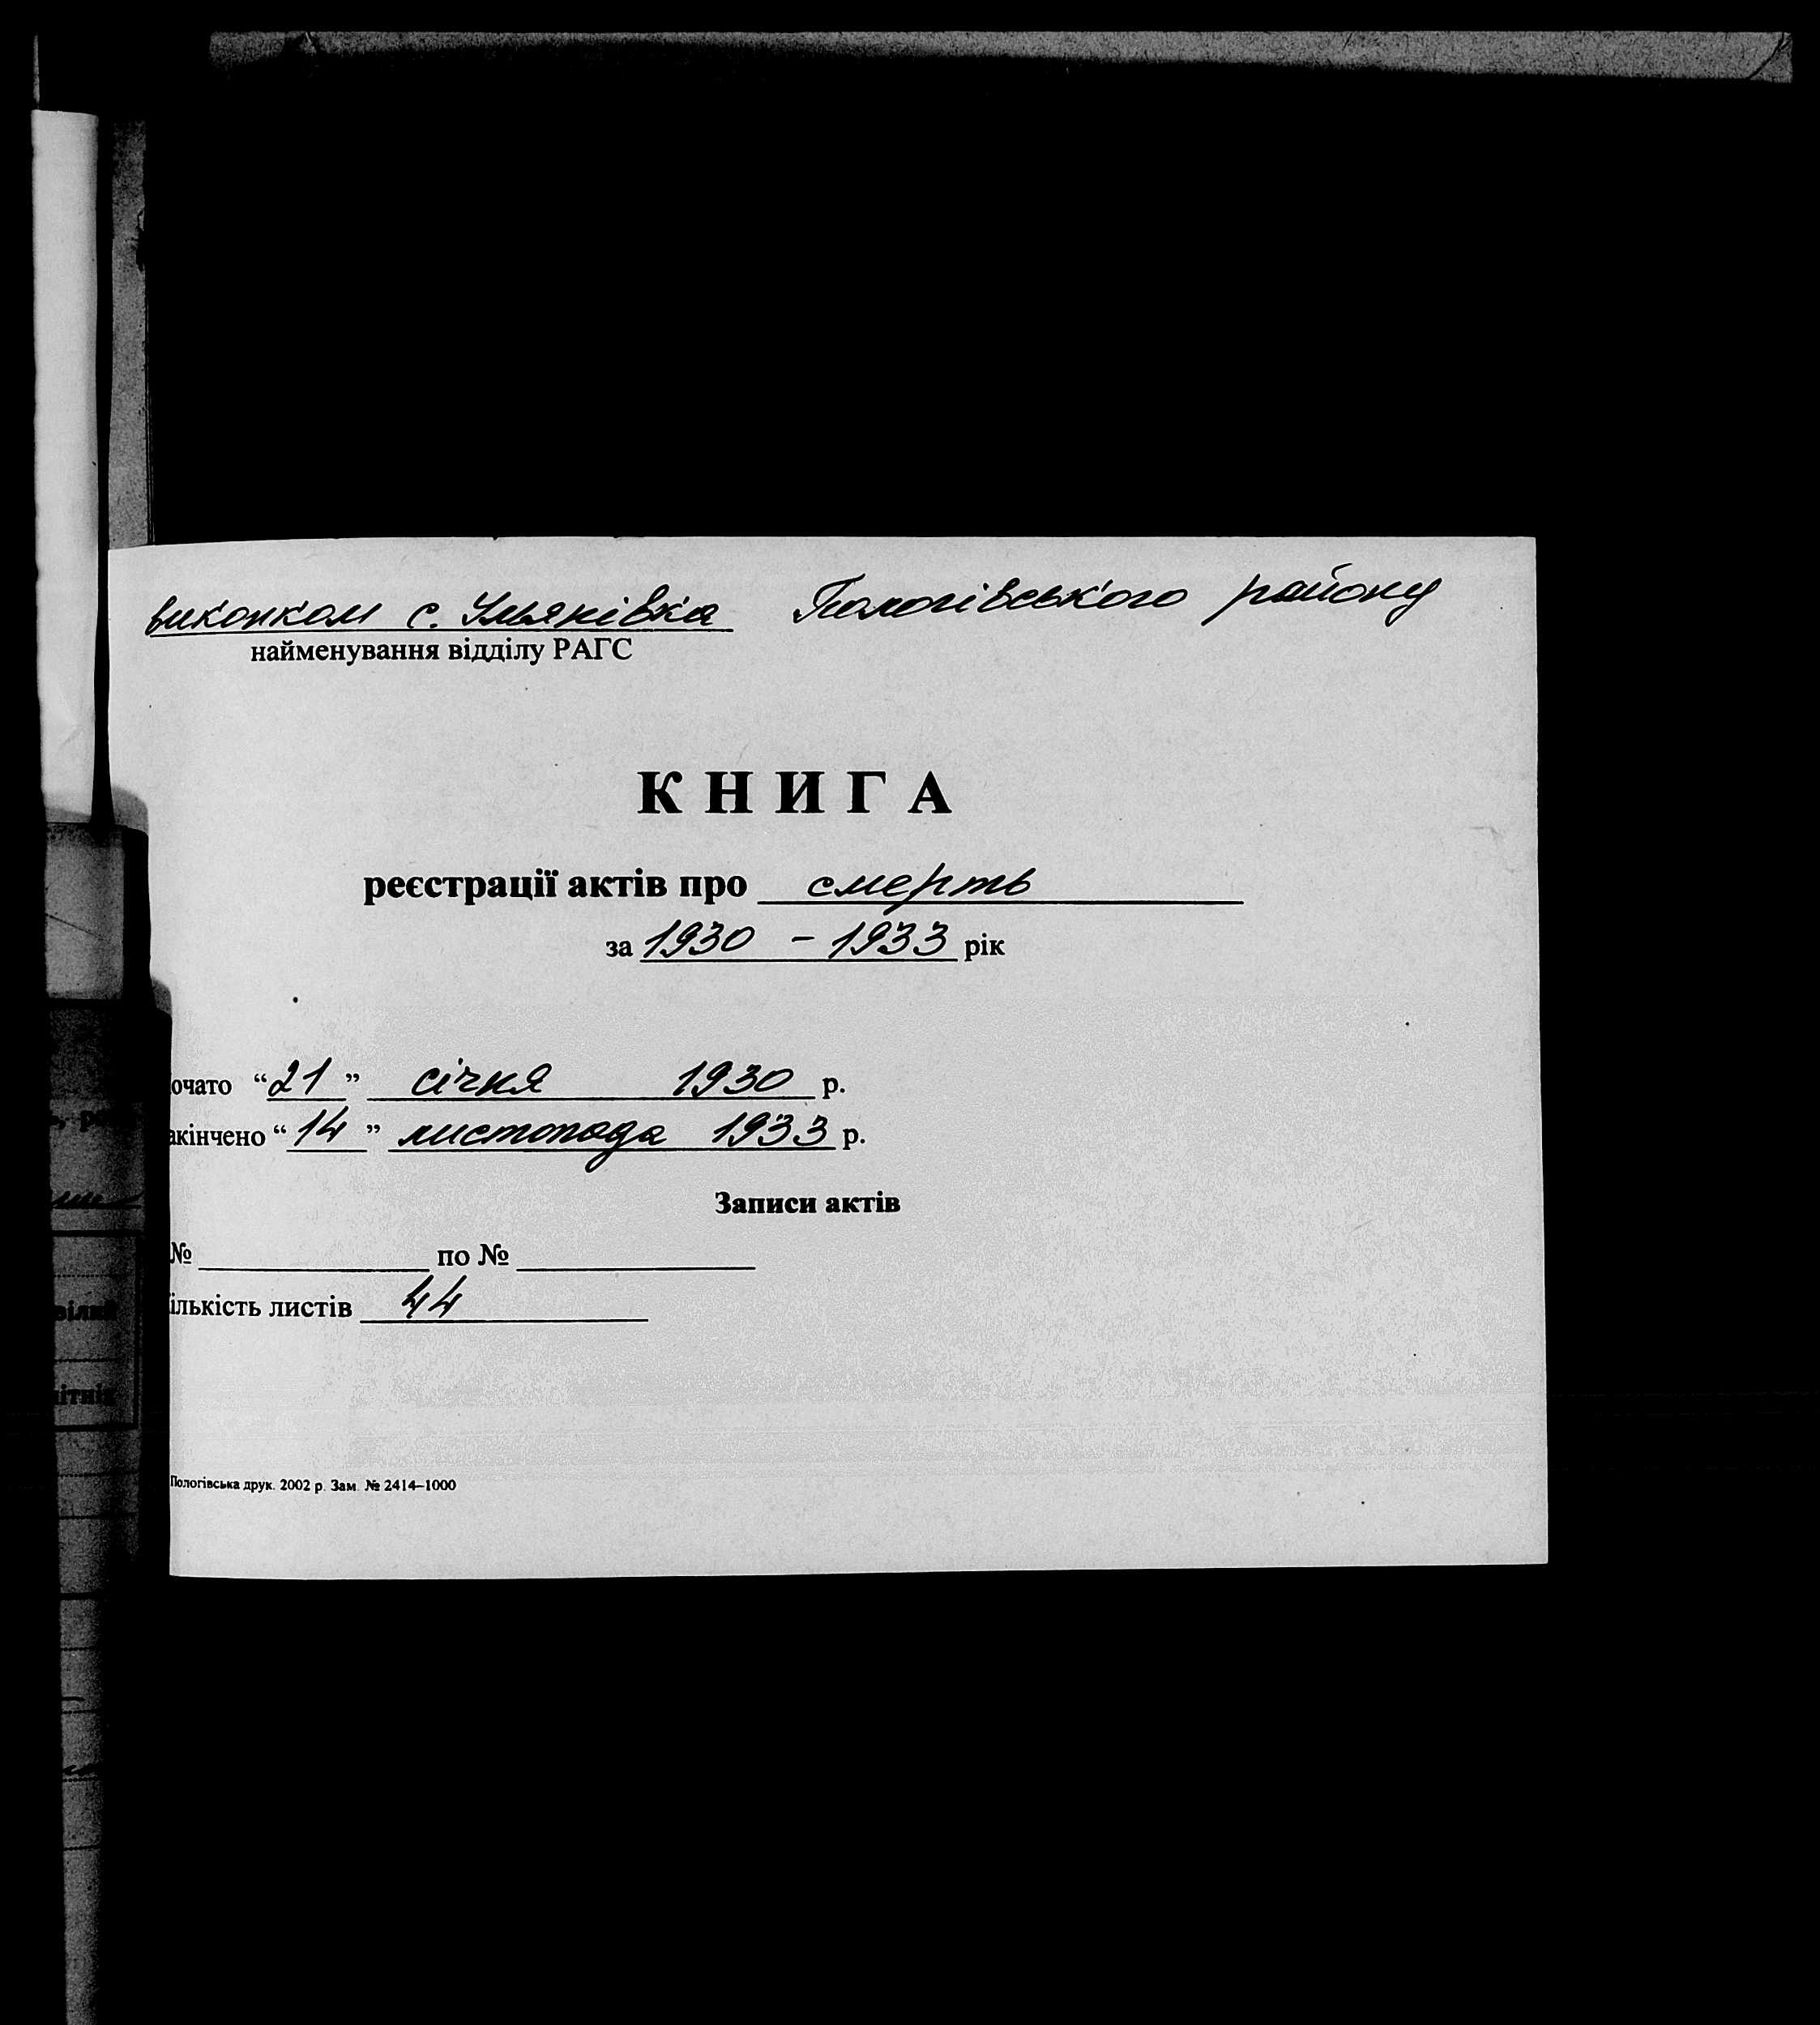 виконком с. Ульянівка Пологівського району
найменування відділу РАГС
КНИГА
реєстрації актів про смерть
за 1930 - 1933 рік
очато “21” січня 1930 р.
акінчено “14” листопада 1933 р.
Записи актів
№ по №
ількість листів 44
Пологівська друк. 2002 р. Зам. № 2414–1000